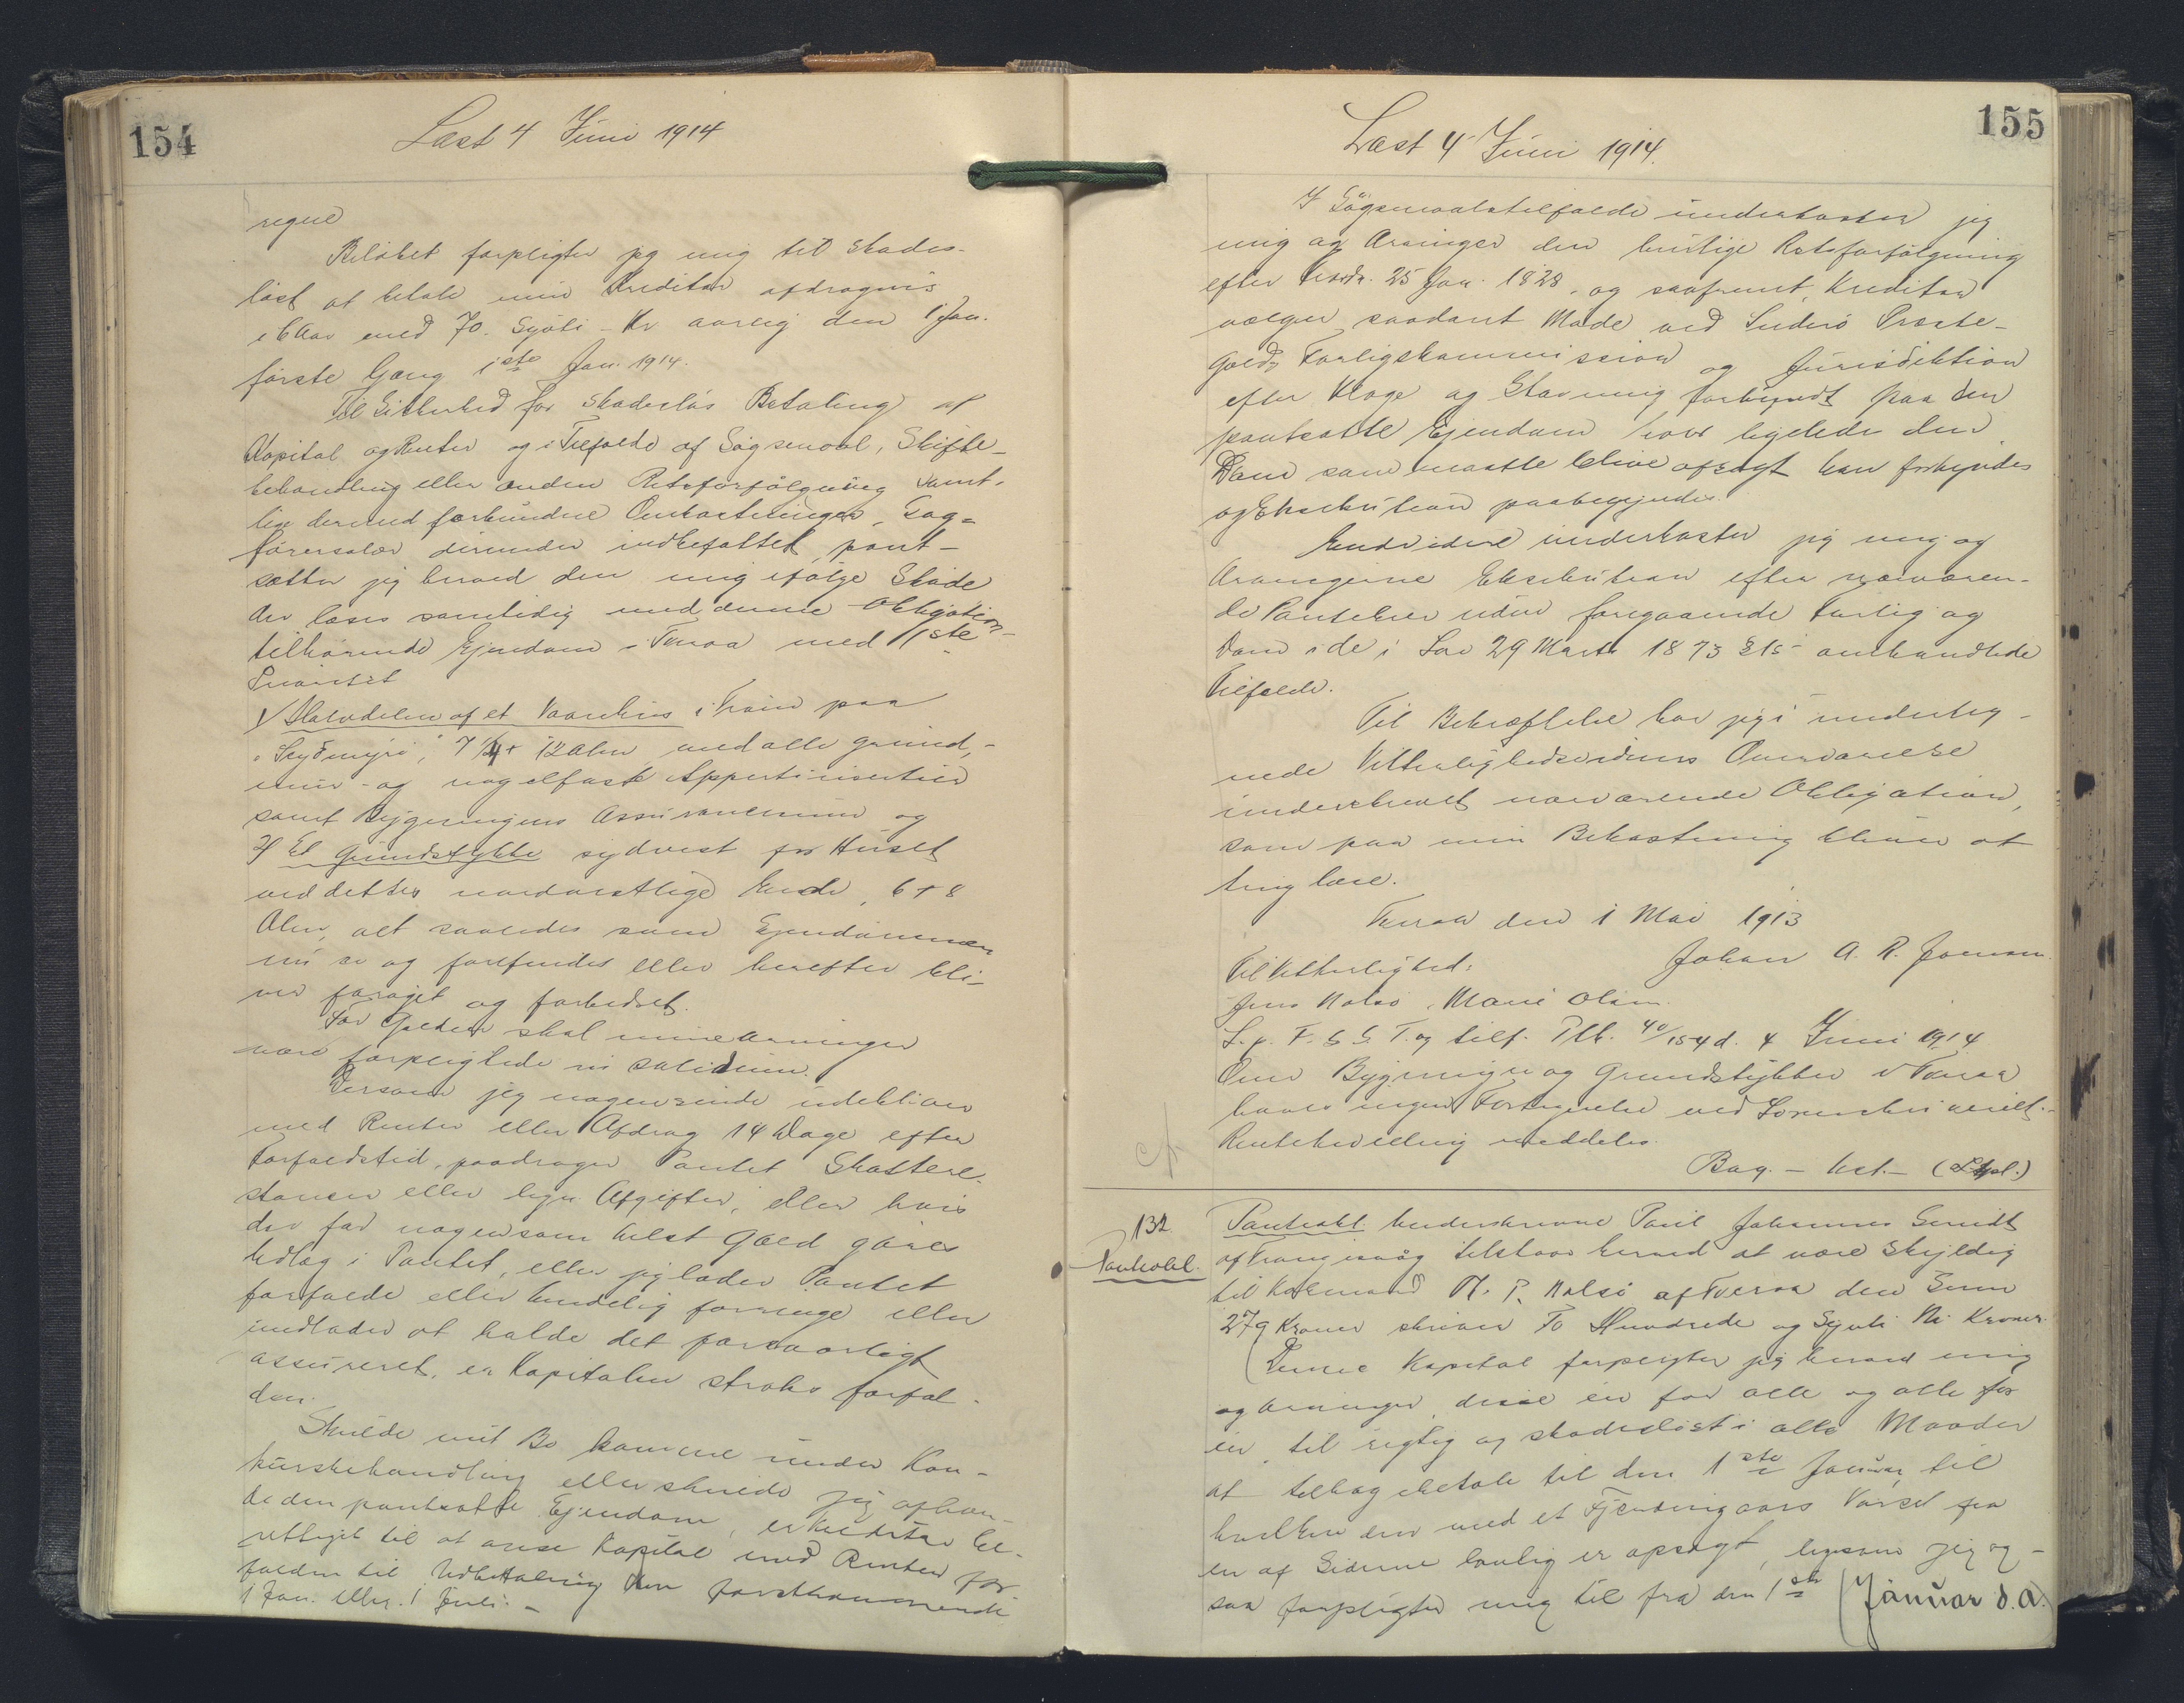 154
Læst 4 Juni 1914
regne
Beløbet forpligter jeg mig til skades-
løst at betale min Kreditor afdragsvis
i Aar med 70. Syvti - Kr aarlig den 1 Jan.
første Gang 1ste Jan. 1914.
Til Sikkerhed for skadesløs Betaling af
Kapital og Renter og i Tilfælde af Søgsmaal, Skifte-
behandling eller anden Retsforfølgning samt-
lige dermed forbundne Omkostninger, Sag-
førersalær derunder indbefattet, pant-
sætter jeg herved den mig ifølge Skøde
der læses samtidig med denne Obligation
tilhørende Ejendom i Tveraa med 1ste
Prioritet
1/ Halvdelen af et Vaanhus i Train paa
" 7 1/4 + 12 Alen med alle grund,-
mur- og nagelfaste Appertinentier
samt Bygningens Assurancesum og
2/ Et Grundstykke sydvest for Huset
ved dettes nordvestlige Ende, 6 + 8
Alen, alt saaledes som Ejendommen
nu er og forefindes eller herefter bli-
ver forøget og forbedret.
For Gælden skal mine Arvinger
være forpligtede in solidum.
Dersom jeg nogensinde udebliver
med Renter eller Afdrag 14 Dage efter
Forfaldstid, paadrager Pantet Skattere-
stancer eller lign. Afgifter, eller hvis
der for nogensom helst Gæld gøres
Udlæg i Pantet, eller jeg lader Pantet
forfalde eller kendelig forringe eller
undlader at holde det forsvarligt
assureret, er Kapitalen straks forfal-
den.
Skulde mit Bo komme under Kon-
kursbehandling eller skulde jeg afhæn-
de den pantsatte Ejendom, er Kreditor be-
rettiget til at anse Kapital med Renter for
falden til Udbetaling den førstkommende
1 Jan. eller 1 Juli. -
155
Læst 4 Juni 1914.
I Søgsmaalstilfælde underkaster jeg
mig og Arvinger den hurtige Retsforfølgning
efter Frdn. 25 Jan. 1828, og saafremt Kreditor
vælger saadant Møde ved Suderø Præste-
gælds Forligskommission og Jurisdiktion
efter Klage og Stævning forkyndt paa den
pantsatte Ejendom hvor ligeledes den
Dom som maatte blive afsagt kan forkyndes
og Eksekution paabegyndes.
Endvidere underkaster jeg mig og
Arvingerne Eksekution efter nærværen-
de Pantebrev uden foregaaende Forlig og
Dom i de i Lov 29 Marts 1873 § 15 omhandlede
Tilfælde.
Til Bekræftelse har jeg i underteg-
nede Vitterlighedsvidners Overværelse
underskrevet nærværende Obligation,
som paa min Bekostning bliver at
tinglæse.
Tveraa den 1 Mai 1913
Johan A. R. Joensen
Til Vitterlighed:
Jens Nolsø, Marie Olsen.
L. p. F. S. S. T. og tilf. Ptb. 40/154 d. 4 Juni 1914
Om Bygningen og Grundstykket i Tveraa
haves ingen Fortegnelse ved Sorenskriveriet.-
Rentebevilling meddeles.
Bag. - kst.- (Stpl.)
132
Panteobl.
Panteobl. Underskrevne Poul Johannes Smidt
af Trangisvåg tilstaar herved at være skyldig
til Købmand N. P. Nolsø af Tveraa den Sum
279 Kroner skriver To Hundrede og Syvti Ni Kroner.
Denne Kapital forpligter jeg herved mig
og Arvinger, disse en for alle og alle for
en, til rigtig og skadesløst i alle Maader
at tilbagebetale til den 1ste Januar, til
hvilken den med et Fjerdingaars Varsel fra
en af Siderne lovlig er opsagt, ligesom jeg og-
saa forpligter mig til fra den 1ste Januar d. A.